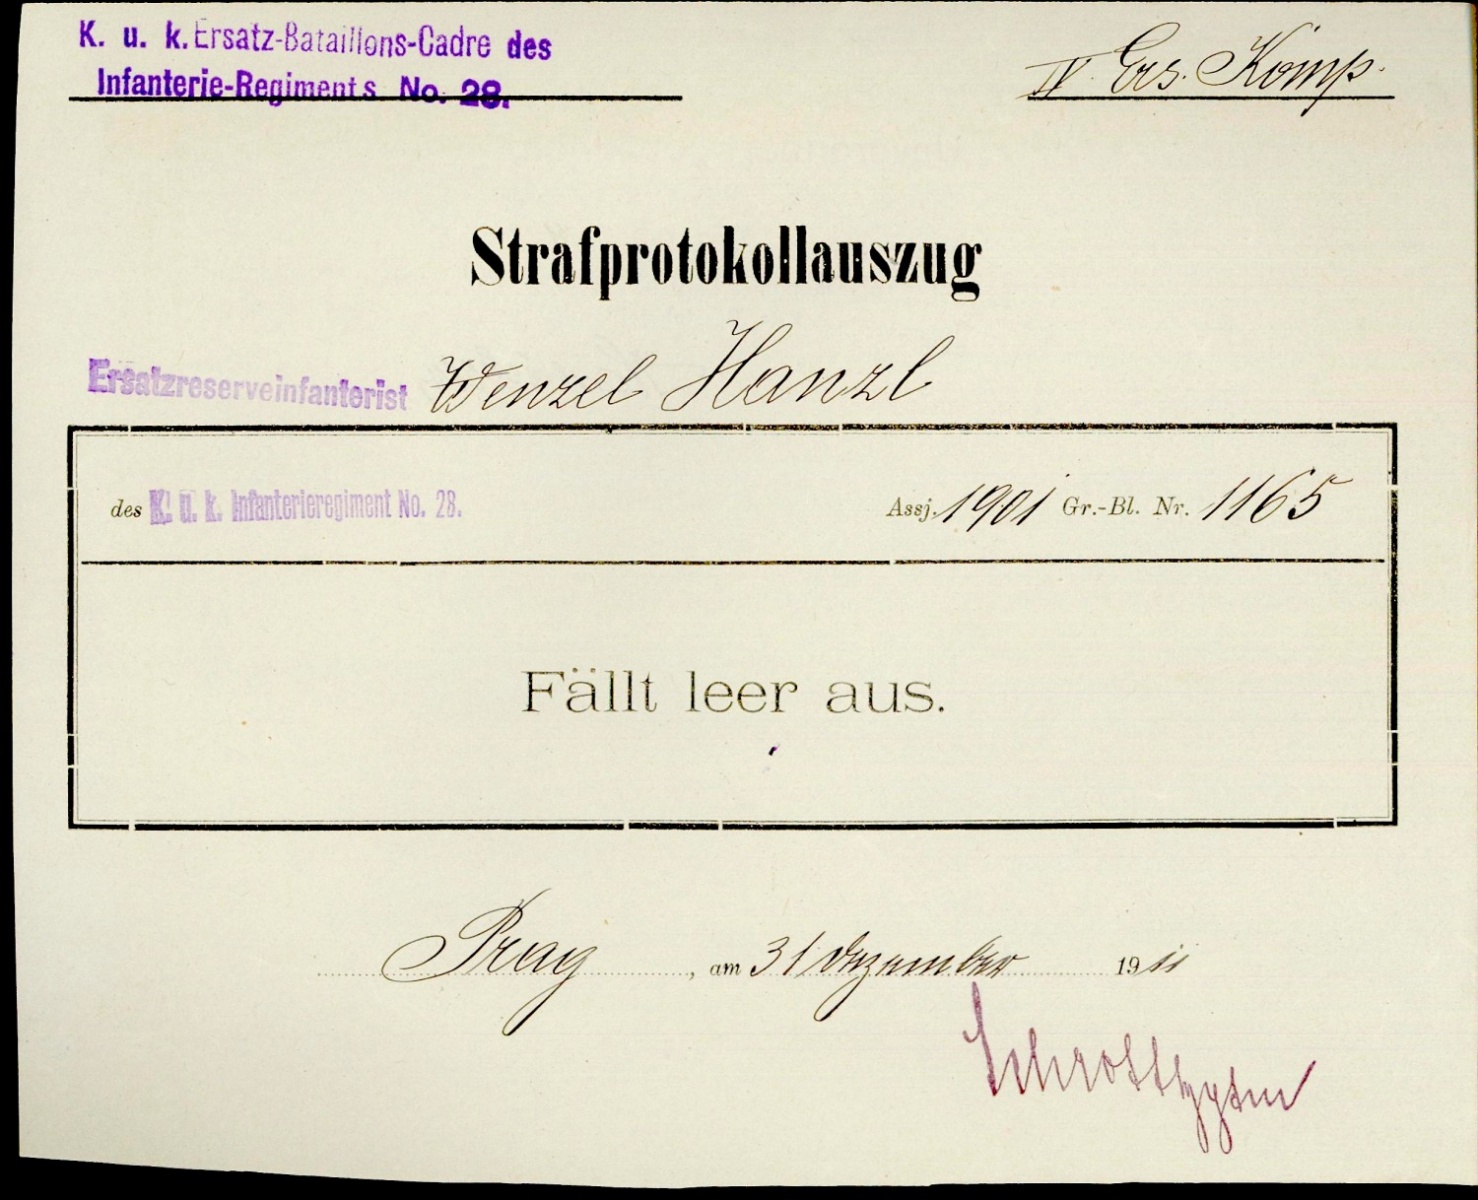 K. u. k. Ersatz-Bataillons-Cadre des
Infanterie-Regiments No. 28.
IV. Ers. Komp.
Strafprotokollauszug
Ersatzreserveinfanterist Wenzel Hanzl
des K. u. k. Infanterieregiment No. 28.
Assj. 1901 Gr.-Bl. Nr. 1165
Fällt leer aus.
Prag, am 31 Dezember 1911